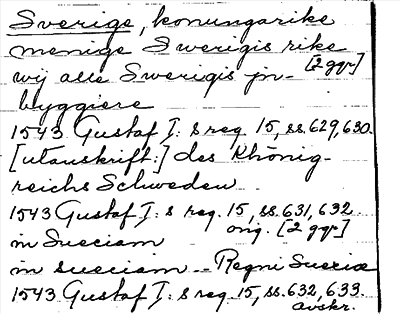 Sverige, konungarike
menige Swerigis rike
wij alle Swerigis jn- [2 ggr]
byggiere
1543 Gustaf I: s reg. 15, ss. 629, 630.
[utanskrift:] des Khönig-
reichs Schweden
1543 Gustaf I: s reg. 15, ss. 631, 632.
in Sueciam orig. [2 ggr]
in sueciam -- Regni Sueciæ
1543 Gustaf I: s reg. 15, ss. 632, 633.
avskr.